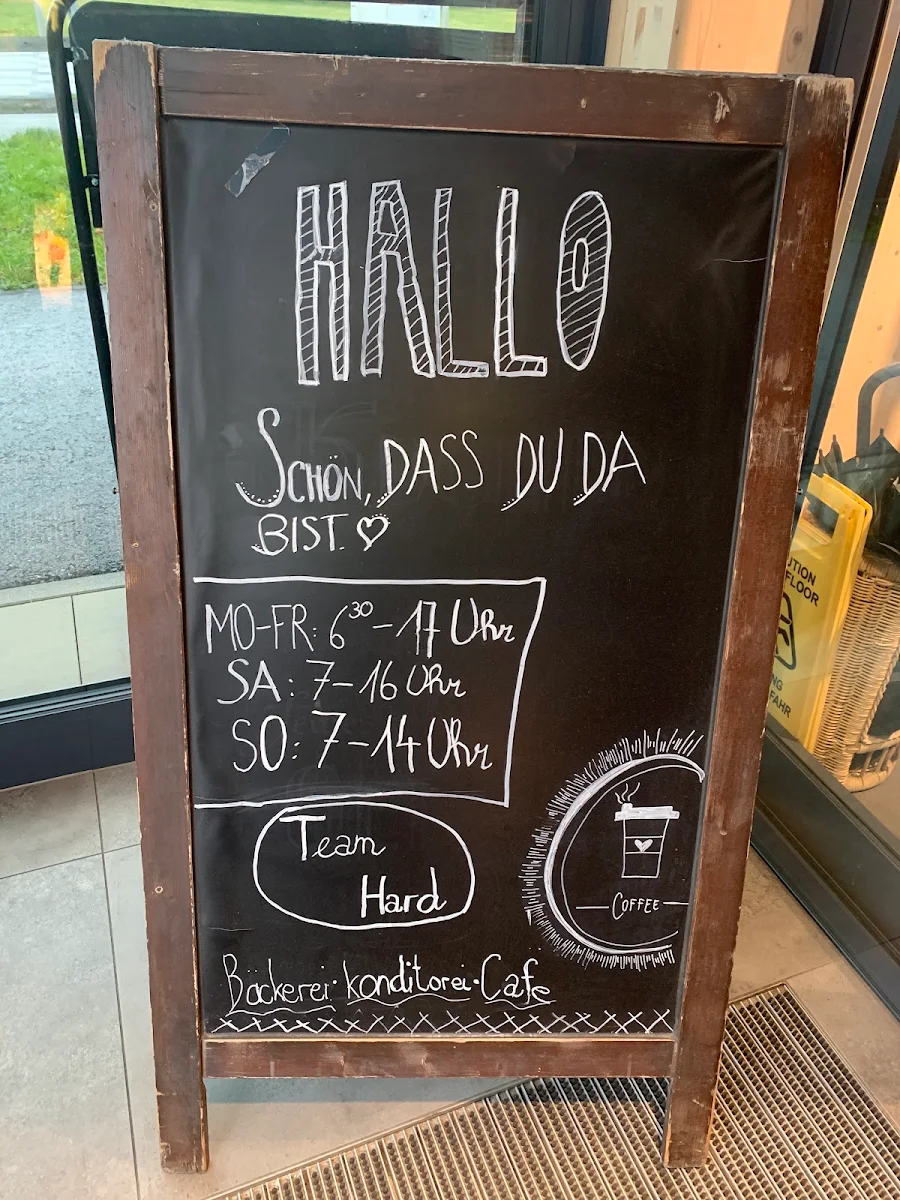 HALLO
SCHÖN, DASS DU DA
BIST. ♡
MO-FR: 6³⁰ - 17 Uhr
SA: 7 - 16 Uhr
SO: 7 - 14 Uhr
Team
Hard
COFFEE
Bäckerei · konditorei · Cafe
UTION
FLOOR
NG
FAHR